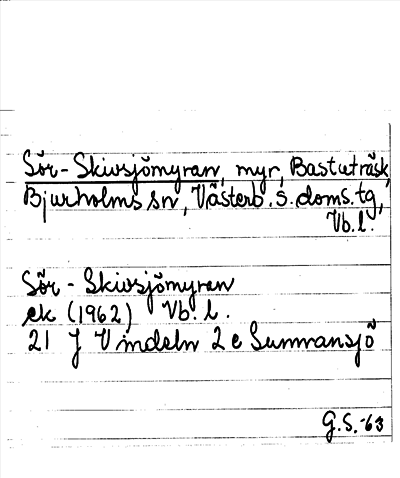 Sör-Skivsjömyran, myr, Bastuträsk,
Bjurholms sn, Västerb. s. doms. tg,
Vb. l.
Sör-Skivsjömyran
ek (1962) Vb. l.
21 J Vindeln 2 e Summansjö
G.S.-63